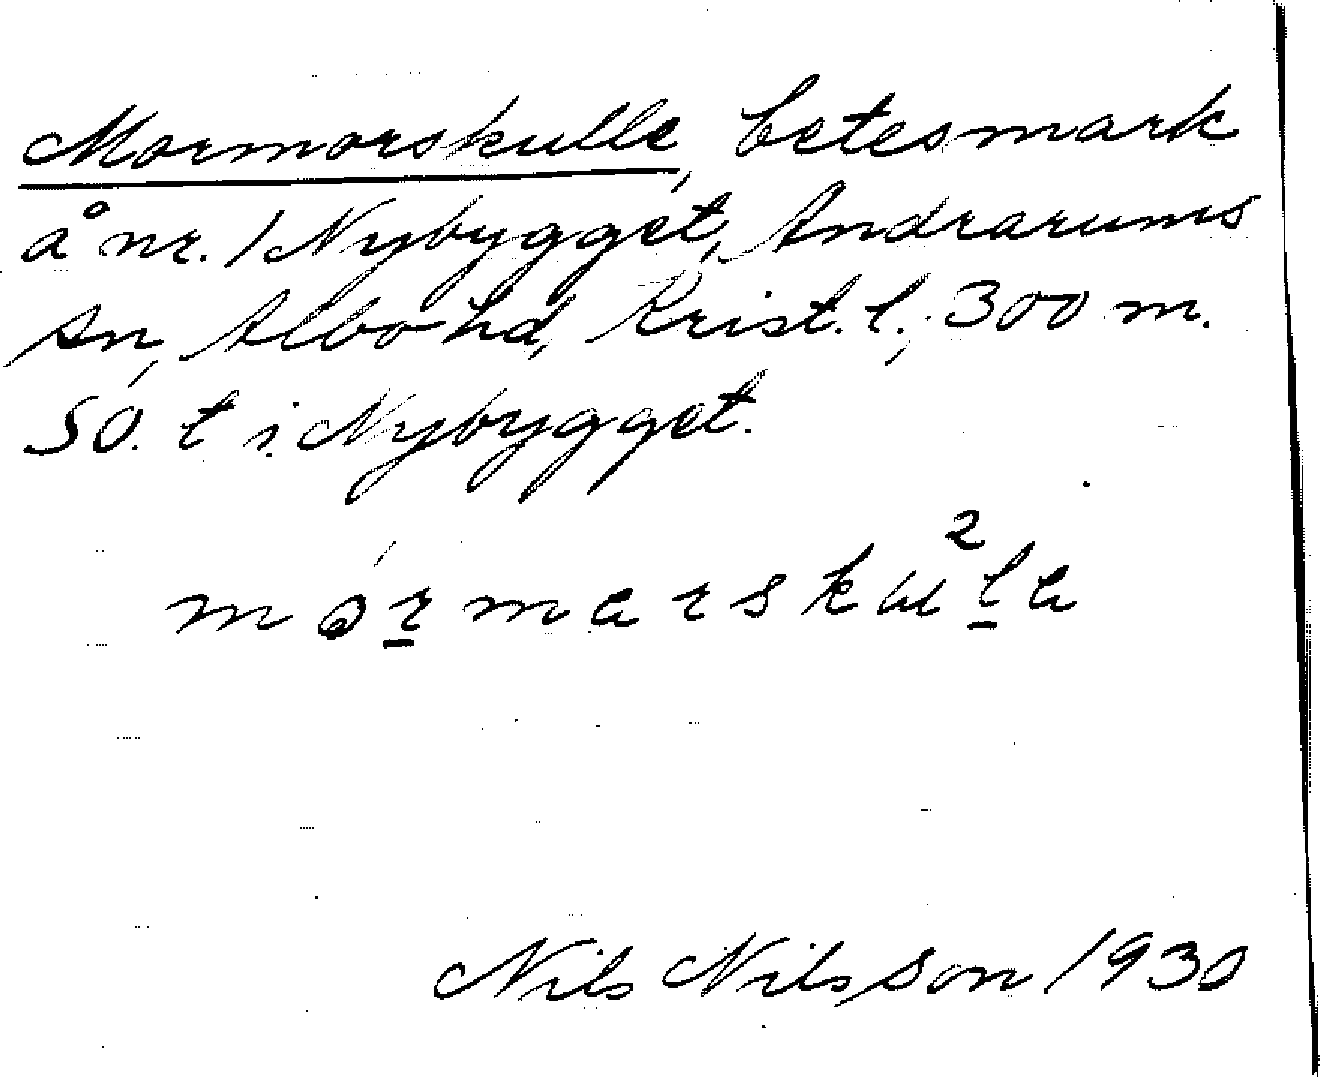 Mormorskulle, betesmark
å nr. 1 Nybygget, Andrarums
sn, Albo hd, Krist. l., 300 m.
SO. t i. Nybygget.
Nils Nilsson 1930